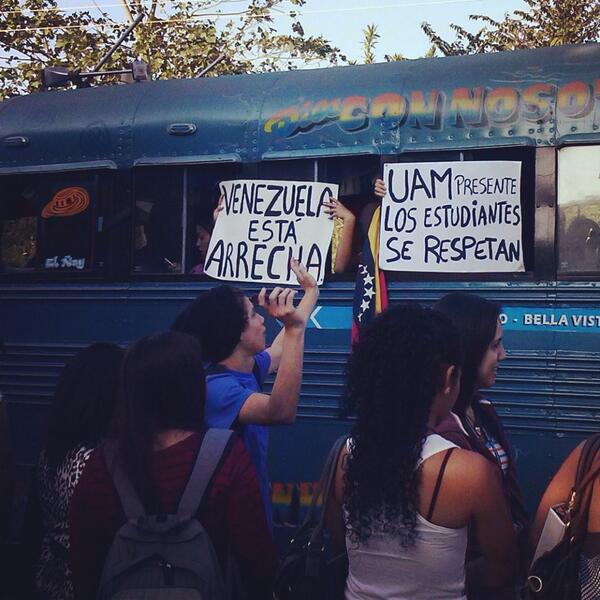 Dios CON NOSO
VENEZUELA
ESTÁ
ARRECHA
UAM PRESENTE
LOS ESTUDIANTES
SE RESPETAN
El Ray
O - BELLA VIST